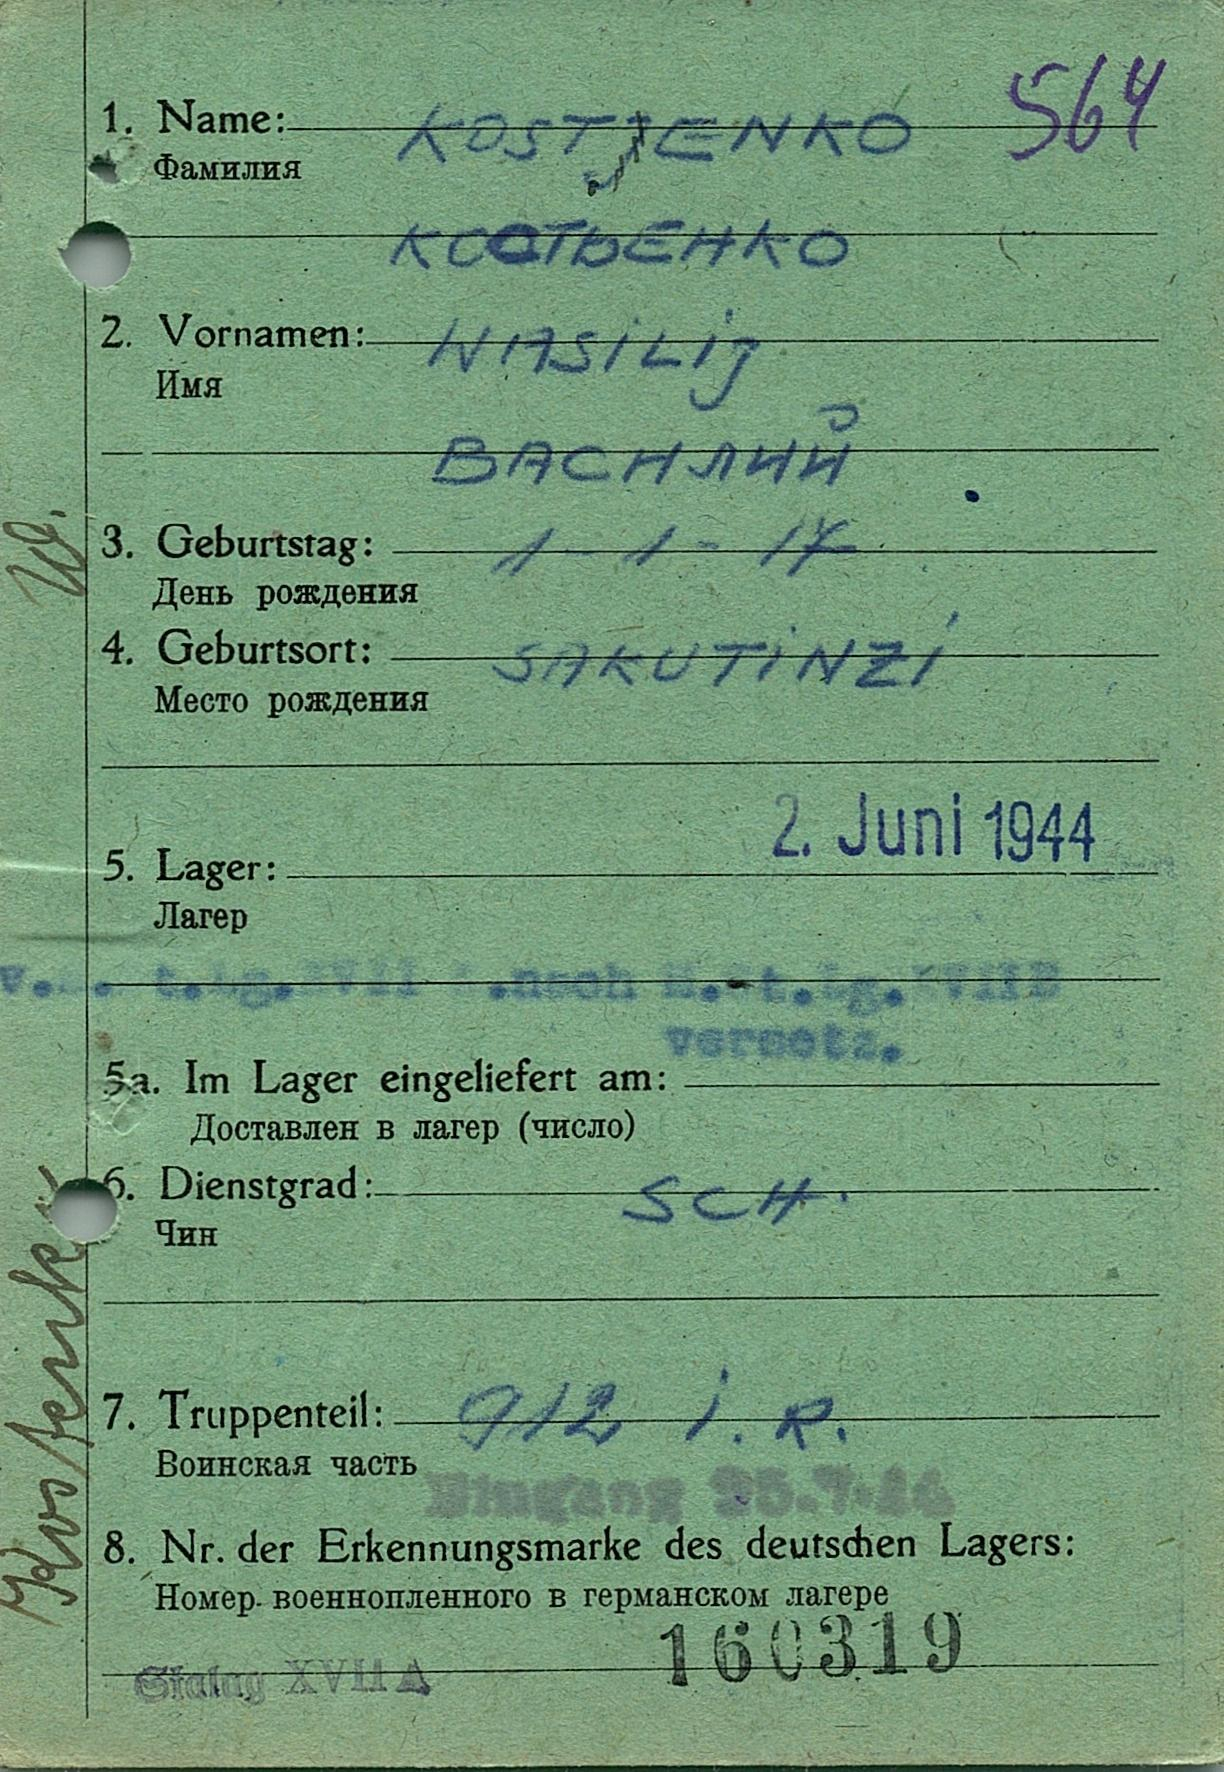 564
1. Name: KOSTJENKO
Фамилия
КОСТЬЕНКО
2. Vornamen: WASILIJ
Имя
ВАСИЛИЙ
W.
3. Geburtstag: 1 - 1 - 17
День рождения
4. Geburtsort: SAKUTINZI
Место рождения
2. Juni 1944
5. Lager:
Лагер
nach
versetz.
5a. Im Lager eingeliefert am:
Доставлен в лагер (число)
6. Dienstgrad: SCH.
Чин
Kostenko
7. Truppenteil: 912 i. R.
Воинская часть
Eingang 25.7.44
8. Nr. der Erkennungsmarke des deutschen Lagers:
Номер военнопленного в германском лагере
160319
Stalag XVII A